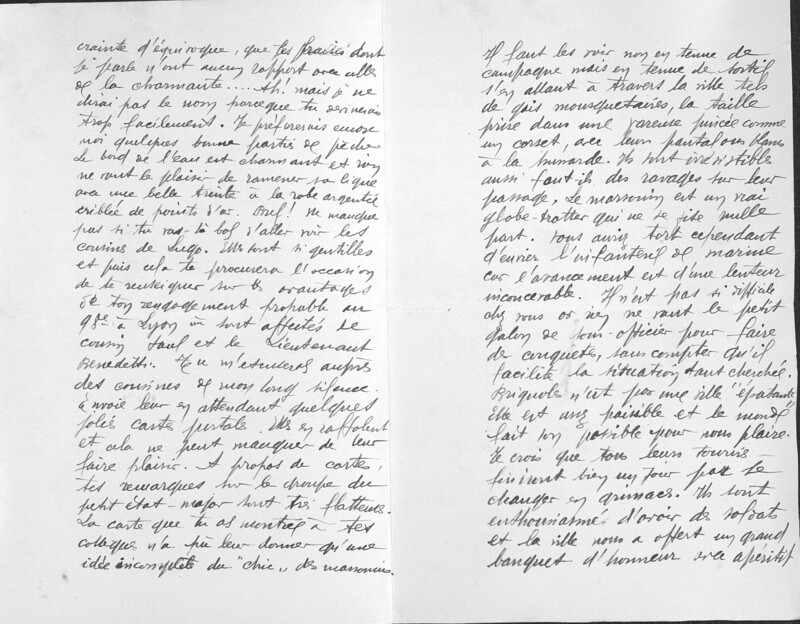 crainte d'équivoque, que les fraises dont
je parle n'ont aucun rapport avec celles
de la charmante..... Ah! mais je ne
dirai pas le nom parce que tu devinerais
trop facilement. Je préférerais encore
moi quelques bonne partis de pêche
Le bord de l'eau est charmant et rien
ne vaut le plaisir de ramener sa ligne
avec une belle truite à la robe argentée
criblée de points d'or. Bref! Ne manque
pas si tu vas là bol d'aller voir les
cousins de Lugo. Elles sont si gentilles
et puis cela te procurera l'occasion
de te renseigner sur les avantages
de ton rengagement probable au
98e à Lyon où sont affectés le
cousin Paul et le Lieutenant
Benedetti. Tu m'excuseras auprès
des cousines de mon long silence.
Envoie leur en attendant quelques
jolies cartes postale. Elles en raffolent
et cela ne peut manquer de leur
faire plaisir. A propos de cartes,
tes remarques sur le groupe du
petit état-major sont très flatteuses.
La carte que tu as montrée à tes
collègues n'a pu leur donner qu'une
idée incomplète du "chic" des marsouins.
Il faut les voir non en tenue de
campagne mais en tenue de sortie
s'en allant à travers la ville tels
de gais mousquetaires, la taille
prise dans une vareuse pincée comme
un corset, avec leurs pantalons blancs
à la hussarde. Ils sont irrésistible
aussi font-ils des ravages sur leur
passage. Le marsouin est un vrai
globe-trotter qui ne se fixe nulle
part. Vous auriez tort cependant
d'envier l'infanterie de marine
car l'avancement est d'une lenteur
inconcevable. Il n'est pas si difficile
chez vous or rien ne vaut le petit
galon de sous-officier pour faire
de conquêtes, sans compter qu'il
facilite la situation tant cherchée.
Brignoles n'est pas une ville "épatante"
Elle est paisible et le monde
fait son possible pour nous plaire.
Je crois que tous leurs sourires
finiront bien un jour par se
changer en grimaces. Ils sont
enthousiasmés d'avoir des soldats
et la ville nous a offert un grand
banquet d'honneur avec apéritif